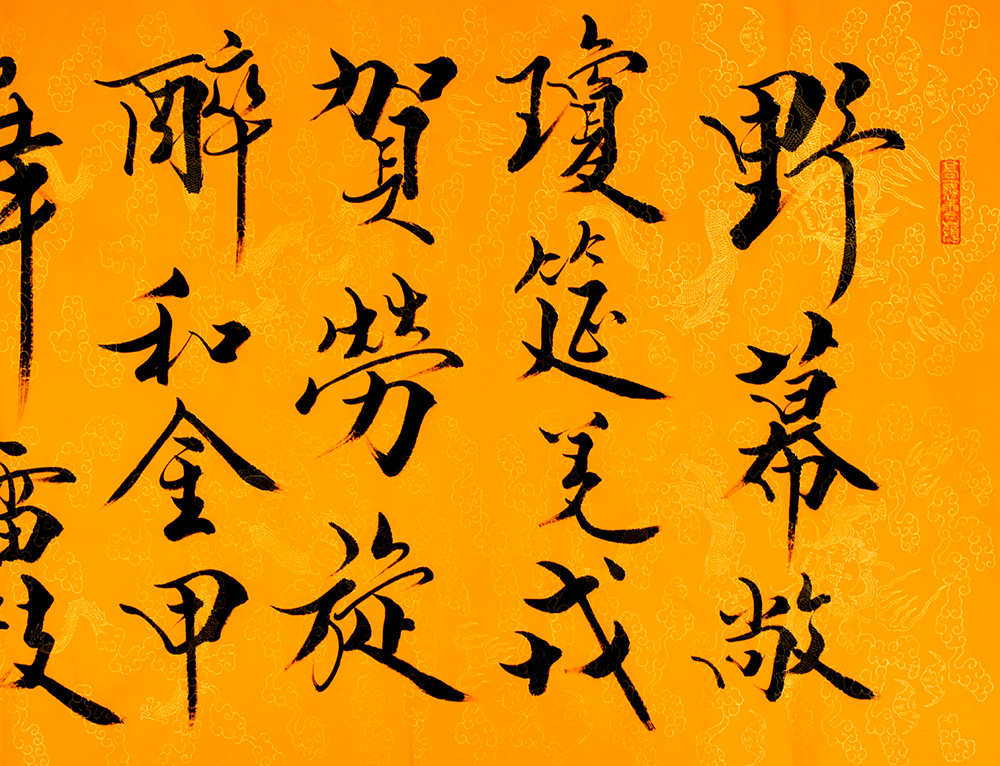 野幕敞
瓊筵羌戎
賀勞旋
醉和金甲
舞雷鼓